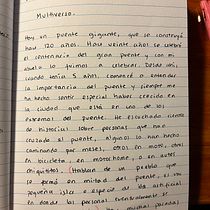 Multiverso.
Hoy un puente gigante, que se construyó
hace 120 años. Hace veinte años se celebró
el centenario del gran puente y con mi
abuelo lo fuimos a celebrar. Desde ahí,
cuando tenía 5 años, comencé a entender
la importancia del puente y siempre me
ha hecho sentir especial haber crecido en
la ciudad que está en uno de los
extremos del puente. He escuchado cientos
de historias sobre personas que han
cruzado el puente, algunos lo han hecho
caminando por meses, otros en moto, otros
en bicicleta, en motorhome, o en autos
chiquititos. Hablan de un pueblo que
se formó en mitad del puente, es una
pequeña isla o especie de isla artificial
en donde las personas eventualmente se
muchas paradas